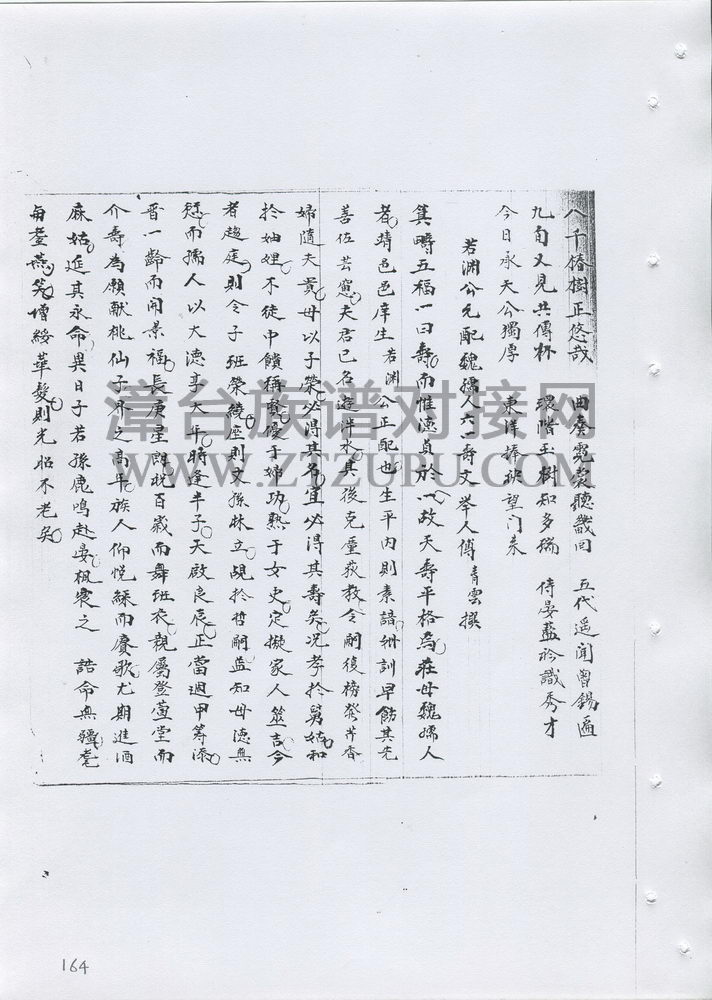 八千椿樹正悠哉 曲奏霓裳聽幾回 五代遥聞曾錫遍
九旬又見共傳杯 環階玉樹知多瑞 侍宴藍衫識秀才
今日承天公獨厚 東洋捧袂望门来
若渊公元配魏孺人六一壽文 举人傅青雲撰
箕疇五福一曰壽而惟德貞於一故天壽平格焉庄母魏孺人
者靖邑邑庠生若渊公正配也生平内則素諳細訓早飭其先
善佐芸窓夫君已名遊泮水其後克重荻教令嗣復榜發芹香
婦隨夫貴母以子榮必得其名宜必得其壽矣况孝於舅姑和
於妯娌不徒中饋稱賢優于婦功熟于女史定擬家人筮吉今
者趨庭則令子班榮繞座則文孫林立覘於哲嗣益知母德無
愆而孺人以大德享大年時逢半子天啟良辰正當週甲籌添
晋一齡而開景福長庚星朗祝百歲而舞班衣親屬登萱堂而
介壽為願献桃仙子界之高年族人仰悦綵而賡歌尤期進酒
麻姑延其永命異日子若孫鹿鳴赴宴楓宸之 誥命無疆耄
每耋燕笑增綏華髮則光昭不老矣
漳台族谱对接网
WWW.ZTZUPU.COM
164